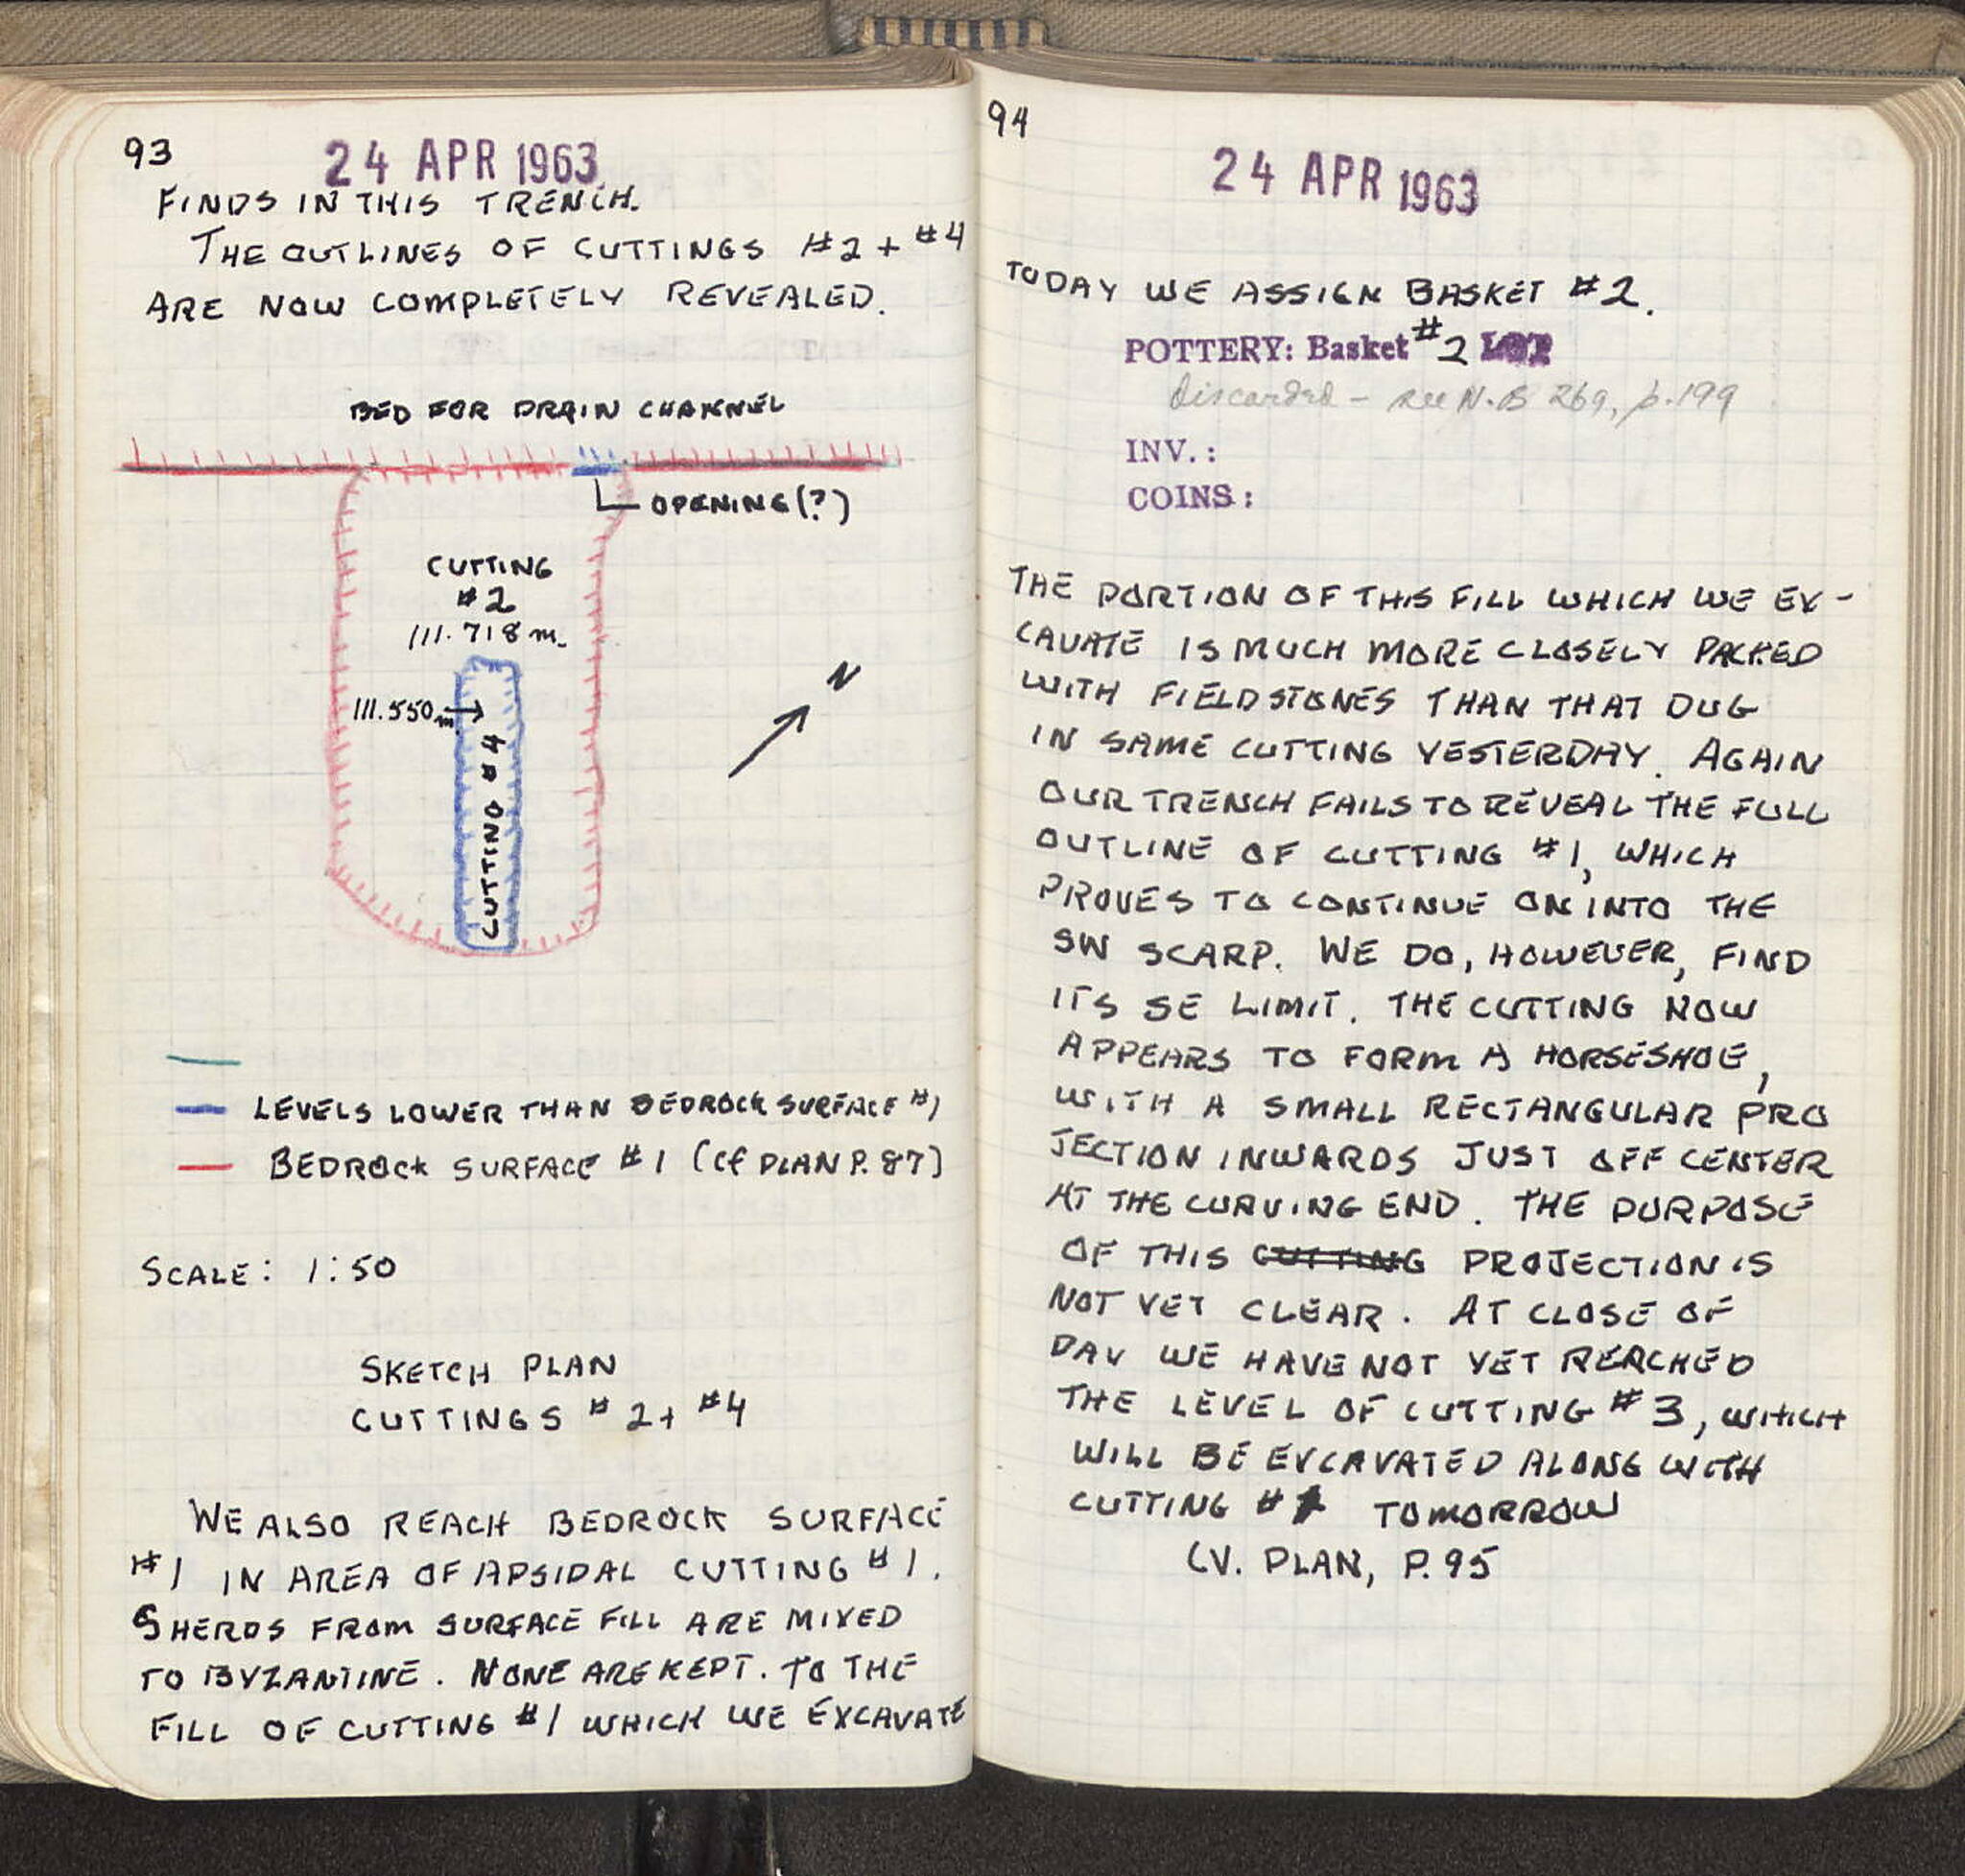 93
24 APR 1963
FINDS IN THIS TRENCH.
THE OUTLINES OF CUTTINGS #2 + #4
ARE NOW COMPLETELY REVEALED.
BED FOR DRAIN CHANNEL
OPENING (?)
CUTTING
#2
111.718 m.
N
111.550 m
CUTTING #4
LEVELS LOWER THAN BEDROCK SURFACE #1
BEDROCK SURFACE #1 (Cf PLAN P. 87)
SCALE: 1:50
SKETCH PLAN
CUTTINGS # 2 + #4
WE ALSO REACH BEDROCK SURFACE
#1 IN AREA OF APSIDAL CUTTING #1.
SHERDS FROM SURFACE FILL ARE MIXED
TO BYZANTINE. NONE ARE KEPT. TO THE
FILL OF CUTTING #1 WHICH WE EXCAVATE
94
24 APR 1963
TODAY WE ASSIGN BASKET #2.
POTTERY: Basket #2
discarded - see N.B 269, p.199
INV.:
COINS:
THE PORTION OF THIS FILL WHICH WE EX-
CAVATE IS MUCH MORE CLOSELY PACKED
WITH FIELDSTONES THAN THAT DUG
IN SAME CUTTING YESTERDAY. AGAIN
OUR TRENCH FAILS TO REVEAL THE FULL
OUTLINE OF CUTTING #1, WHICH
PROVES TO CONTINUE ON INTO THE
SW SCARP. WE DO, HOWEVER, FIND
ITS SE LIMIT. THE CUTTING NOW
APPEARS TO FORM A HORSESHOE,
WITH A SMALL RECTANGULAR PRO
JECTION INWARDS JUST OFF CENTER
AT THE CURVING END. THE PURPOSE
OF THIS CUTTING PROJECTION IS
NOT YET CLEAR. AT CLOSE OF
DAY WE HAVE NOT YET REACHED
THE LEVEL OF CUTTING #3, WHICH
WILL BE EXCAVATED ALONG WITH
CUTTING #1 TOMORROW
(V. PLAN, P. 95